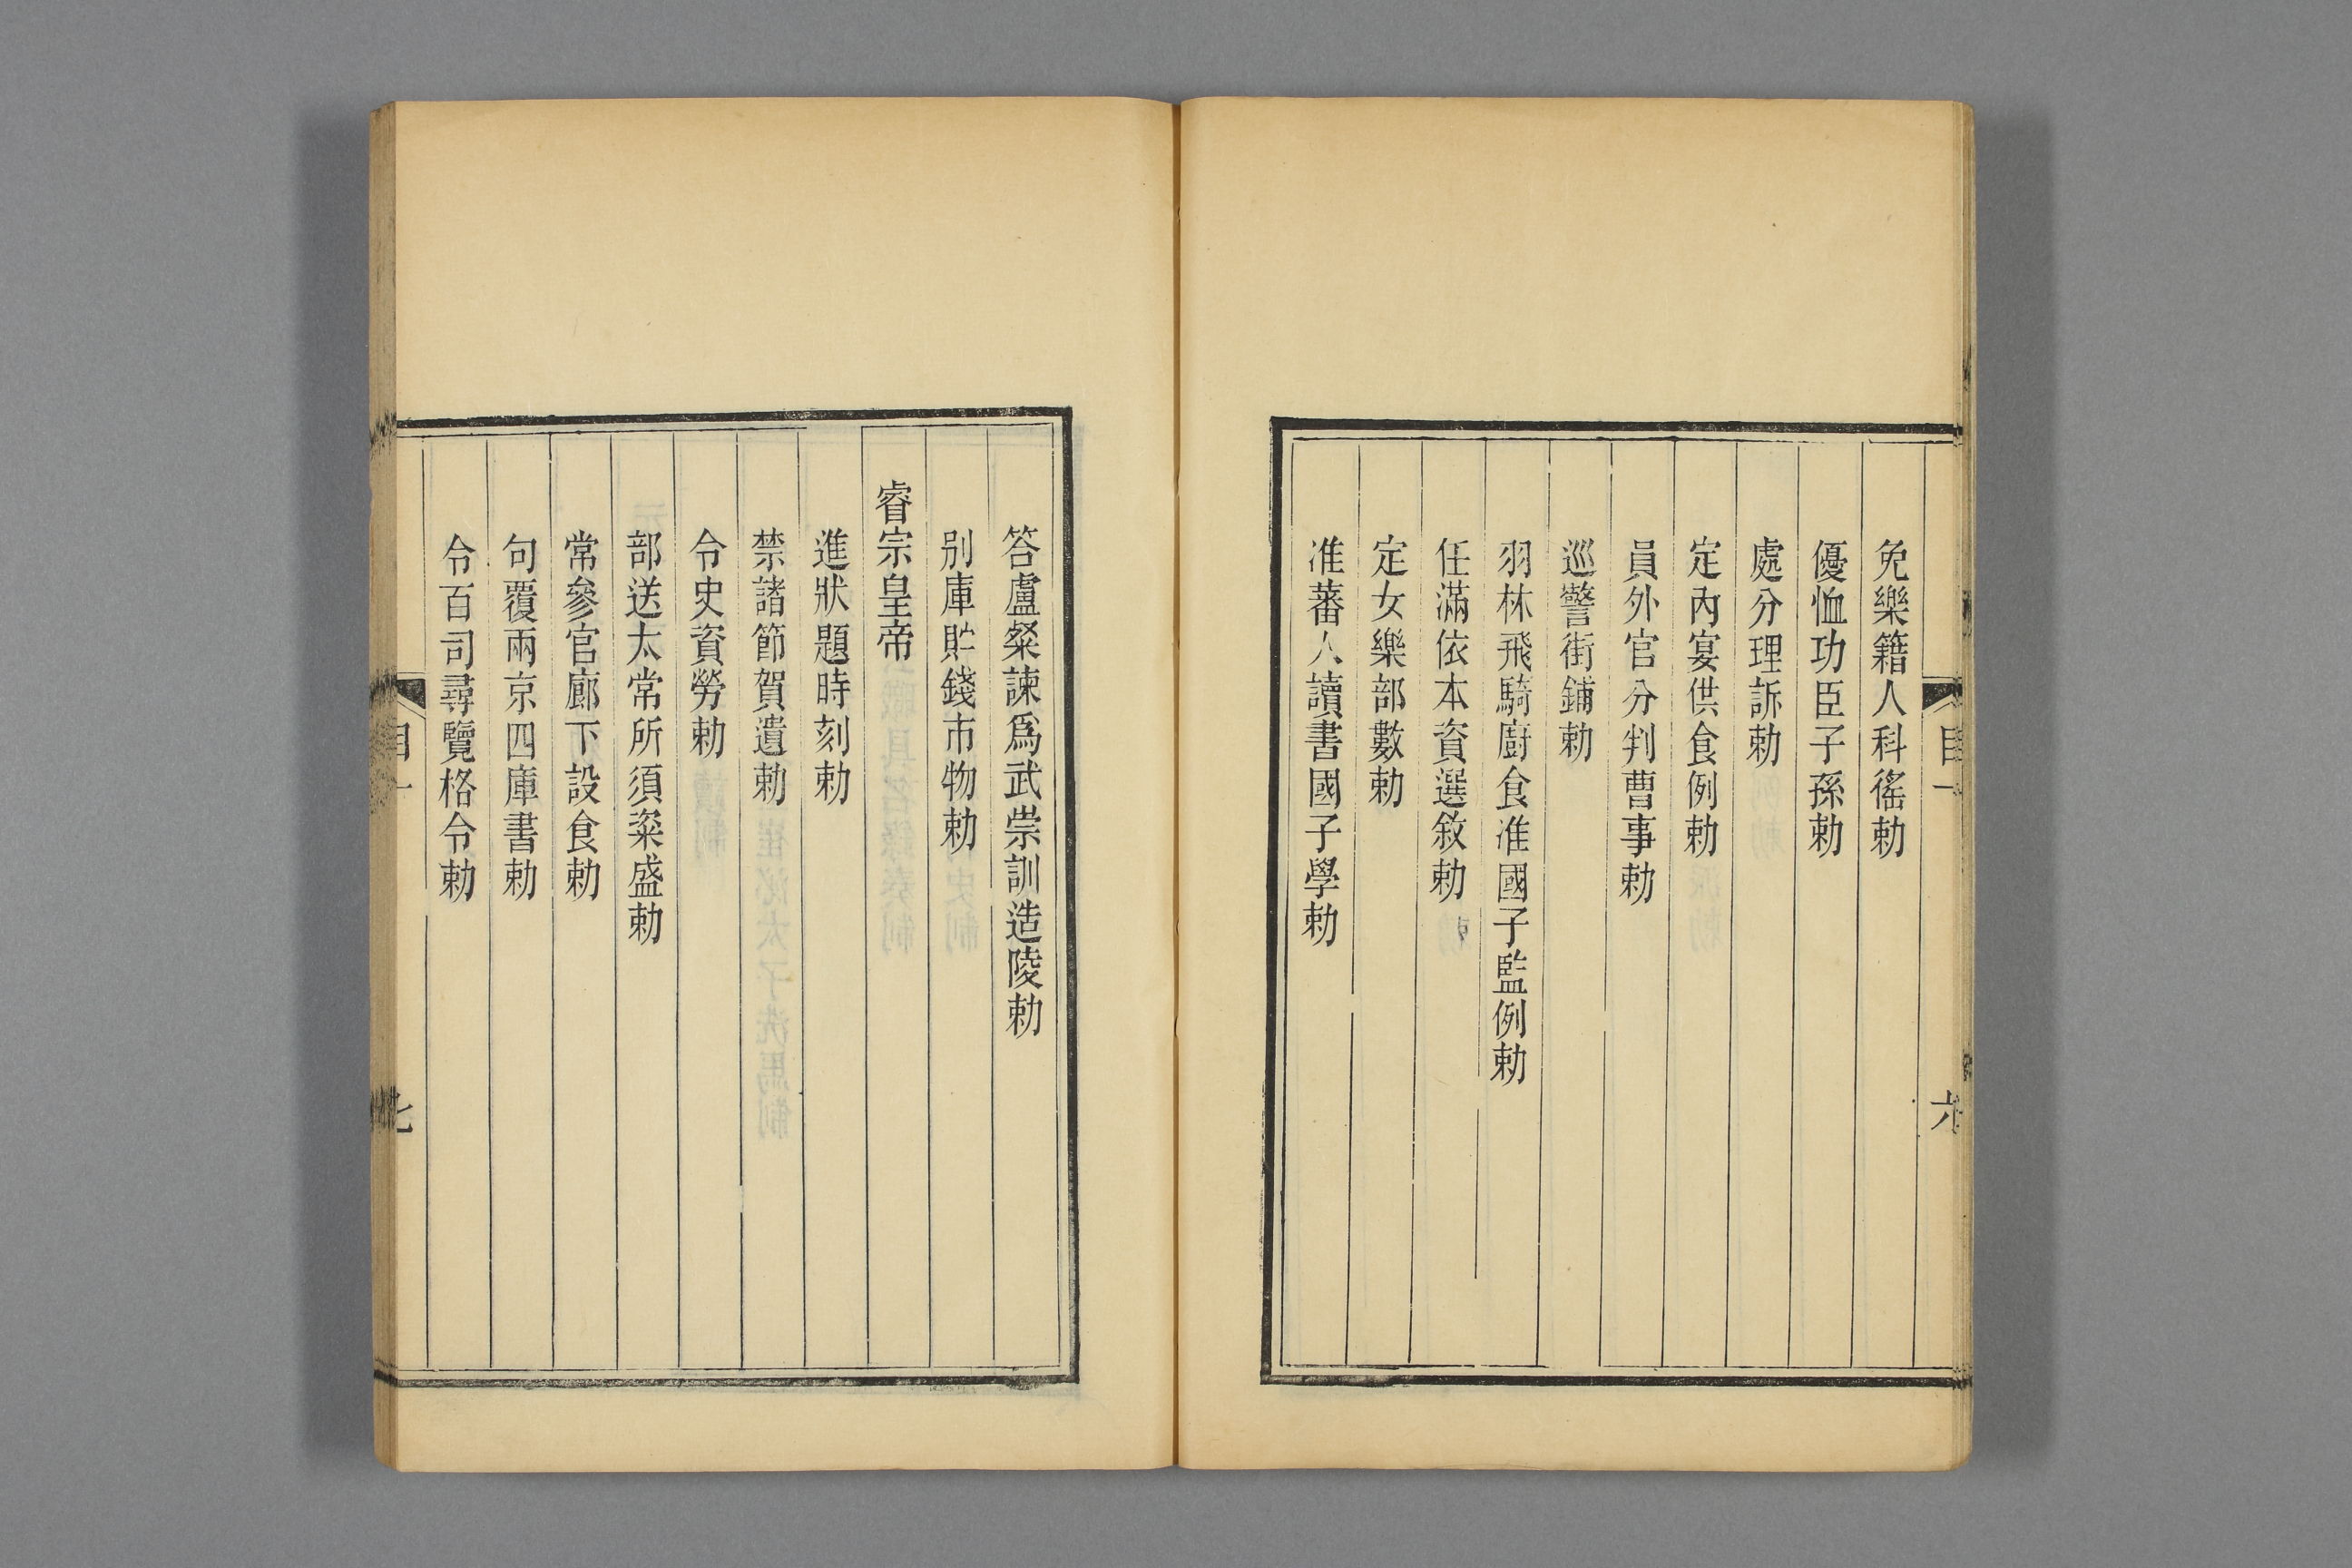 免樂籍人科徭勅
優恤功臣子孫勅
處分理訴勅
定內宴供食例勅
員外官分判曹事勅
巡警街鋪勅
羽林飛騎廚食准國子監例勅
任滿依本資選敘勅
定女樂部數勅
准蕃人讀書國子學勅
答盧粲諫爲武崇訓造陵勅
別庫貯錢市物勅
睿宗皇帝
進狀題時刻勅
禁諸節賀遺勅
令史資勞勅
部送太常所須粢盛勅
常參官廊下設食勅
句覆兩京四庫書勅
令百司尋覽格令勅
目一
七